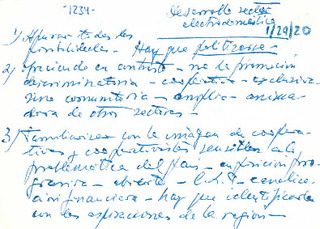 -1234-
Desarrollo sector
electrodoméstico
1/29/20
1) Apurar todas las
posibilidades - Hay que politizarse
2) Haciendo en contexto - no la formación
discriminatoria - coopertiva - exclusiva
sino comunitaria - amplia - anima-
dora de otros sectores -
3) Familiarizar con la imagen de coopera-
tivas y cooperativistas sensibles a la
problemática del país - exposición pro-
gresiva - abierta - C.L.P. - canaliza-
ción financiera - hay que identificarla
con las aspiraciones de la región -